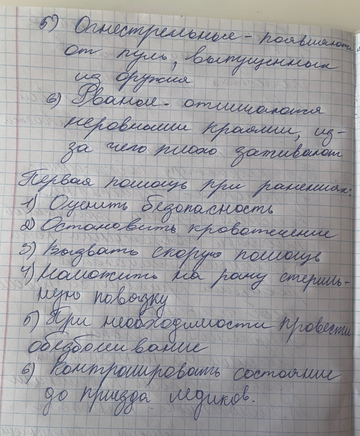 5) Огнестрельные - появляются
от пуль, выпущенных
из оружия
6) Рваная - отличаются
неровными краями, из-
за чего плохо заживают
Первая помощь при ранениях:
1) Оценить безопасность
2) Остановить кровотечение
3) Вызвать скорую помощь
4) Наложить на рану стериль-
ную повязку
5) При необходимости провести
обезболивание
6) Контролировать состояние
до приезда медиков.